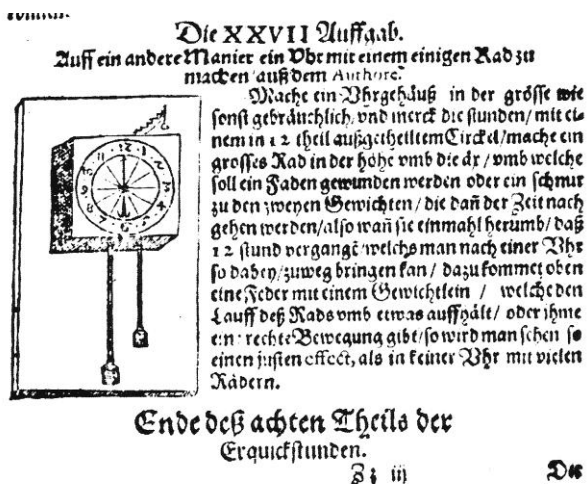 Die XXVII Auffgab.
Auff ein andere Manier ein Vhr mit einem einigen Rad zu
machen auß dem Authore.
Mache ein Vhrgehäuß in der grösse wie
sonst gebräuchlich, vnd merck die stunden/ mit ei-
nem in 12 theil außgetheiltem Circkel/ mache ein
grosses Rad in der höhe vmb die äx/ vmb welche
soll ein Faden gewunden werden oder ein schnur
zu den zweyen Gewichten/ die dañ der Zeit nach
gehen werden/ also wañ sie einmahl herumb/ daß
12 stund vergangē welchs man nach einer Vhr
so dabey/ zuweg bringen kan/ dazu kommet oben
eine Feder mit einem Gewichtlein / welche den
Lauff deß Rads vmb etwas auffhält/ oder ihme
ein rechte Bewegung gibt/ so wird man sehen so
einen justen effect, als in keiner Vhr mit vielen
Rädern.
Ende deß achten Theils der
Erquickstunden.
Zz iij Der